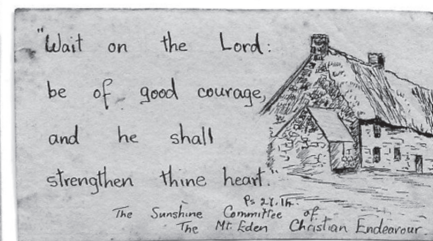 "Wait on the Lord:
be of good courage,
and he shall
strengthen thine heart."
The Sunshine Committee of
The Mt. Eden Christian Endeavour.